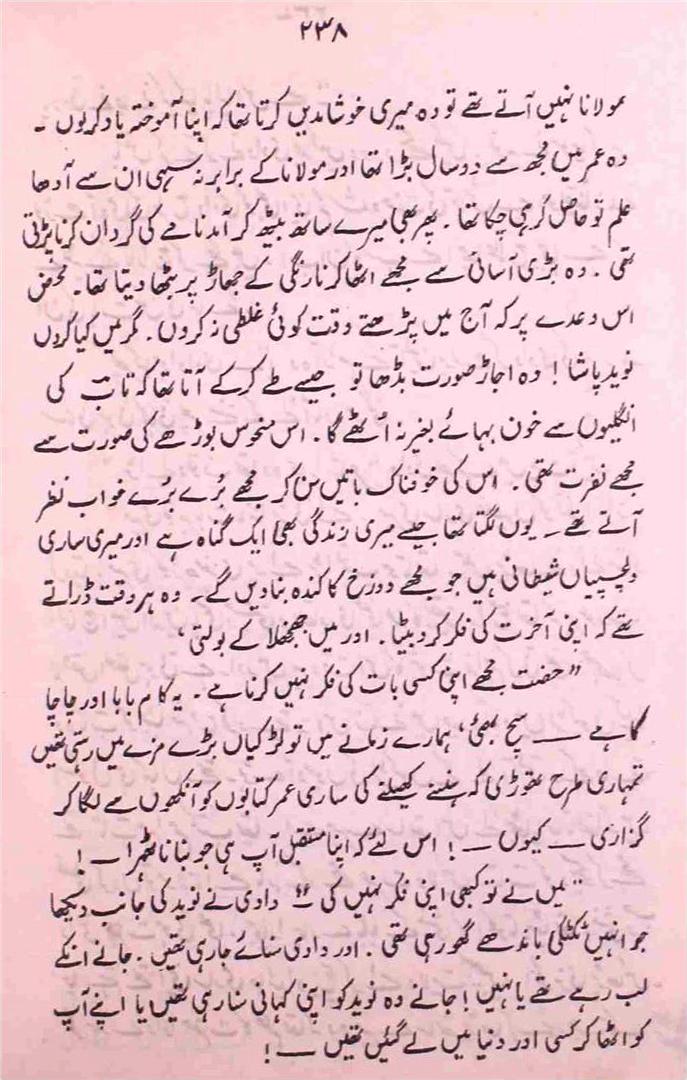 ۲۳۸
مولانا نہیں آتے تھے تو وہ میری خوشامدیں کرتا تھا کہ اپنا آموختہ یاد کر یوں ۔
وہ عمر میں مجھ سے دو سال بڑا تھا اور مولانا کے برابر نہ سہی ان سے آدھا
علم تو حاصل کر ہی چکا تھا ۔ پھر بھی میرے ساتھ بیٹھ کر آمد نامے کی گردان کرنا پڑتی
تھی ۔ وہ بڑی آسانی سے مجھے اٹھا کر نارنگی کے جھاڑ پر بٹھا دیتا تھا ۔ محض
اس وعدے پر کہ آج میں پڑھتے وقت کوئی غلطی نہ کروں ۔ مگر میں کیا کروں
نوید پاشا ! وہ اجاڑ صورت بڈھا تو جیسے طے کر کے آتا تھا کہ تاب کی
انگلیوں سے خون بہائے بغیر نہ اُٹھے گا ۔ اس منحوس بوڑھے کی صورت سے
مجھے نفرت تھی ۔ اس کی خوفناک باتیں سن کر مجھے بُرے بُرے خواب نظر
آتے تھے ۔ یوں لگتا تھا جیسے میری زندگی بھی ایک گناہ ہے اور میری ساری
دلچسپیاں شیطانی ہیں جو مجھے دوزخ کا کندہ بنا دیں گے ۔ وہ ہر وقت ڈراتے
تھے کہ اپنی آخرت کی فکر کرو بیٹا ۔ اور میں جھنجھلا کے بولتی ‘
” حضت مجھے اپنی کسی بات کی فکر نہیں کرنا ہے ۔ یہ کام بابا اور چاچا
کا ہے ــــ سچ بھئی ‘ ہمارے زمانے میں تو لڑکیاں بڑے مزے میں رہتی تھیں
تمہاری طرح تھوڑی کہ ہنسنے کھیلنے کی ساری عمر کتابوں کو آنکھوں سے لگا کر
گزاری ــــ کیوں ــ ! اس لئے کہ اپنا مستقبل آپ ہی جو بنانا ٹھہرا ــ !
” میں نے تو کبھی اپنی فکر نہیں کی “ دادی نے نوید کی جانب دیکھا
جو انہیں ٹکٹکی باندھے گھور رہی تھی ۔ اور دادی سنائے جا رہی تھیں ۔ جانے انکے
لب رہے تھے یا نہیں ! جانے وہ نوید کو اپنی کہانی سنا رہی تھیں یا اپنے آپ
کو اٹھا کر کسی اور دنیا میں لے گئیں تھیں ــــ !